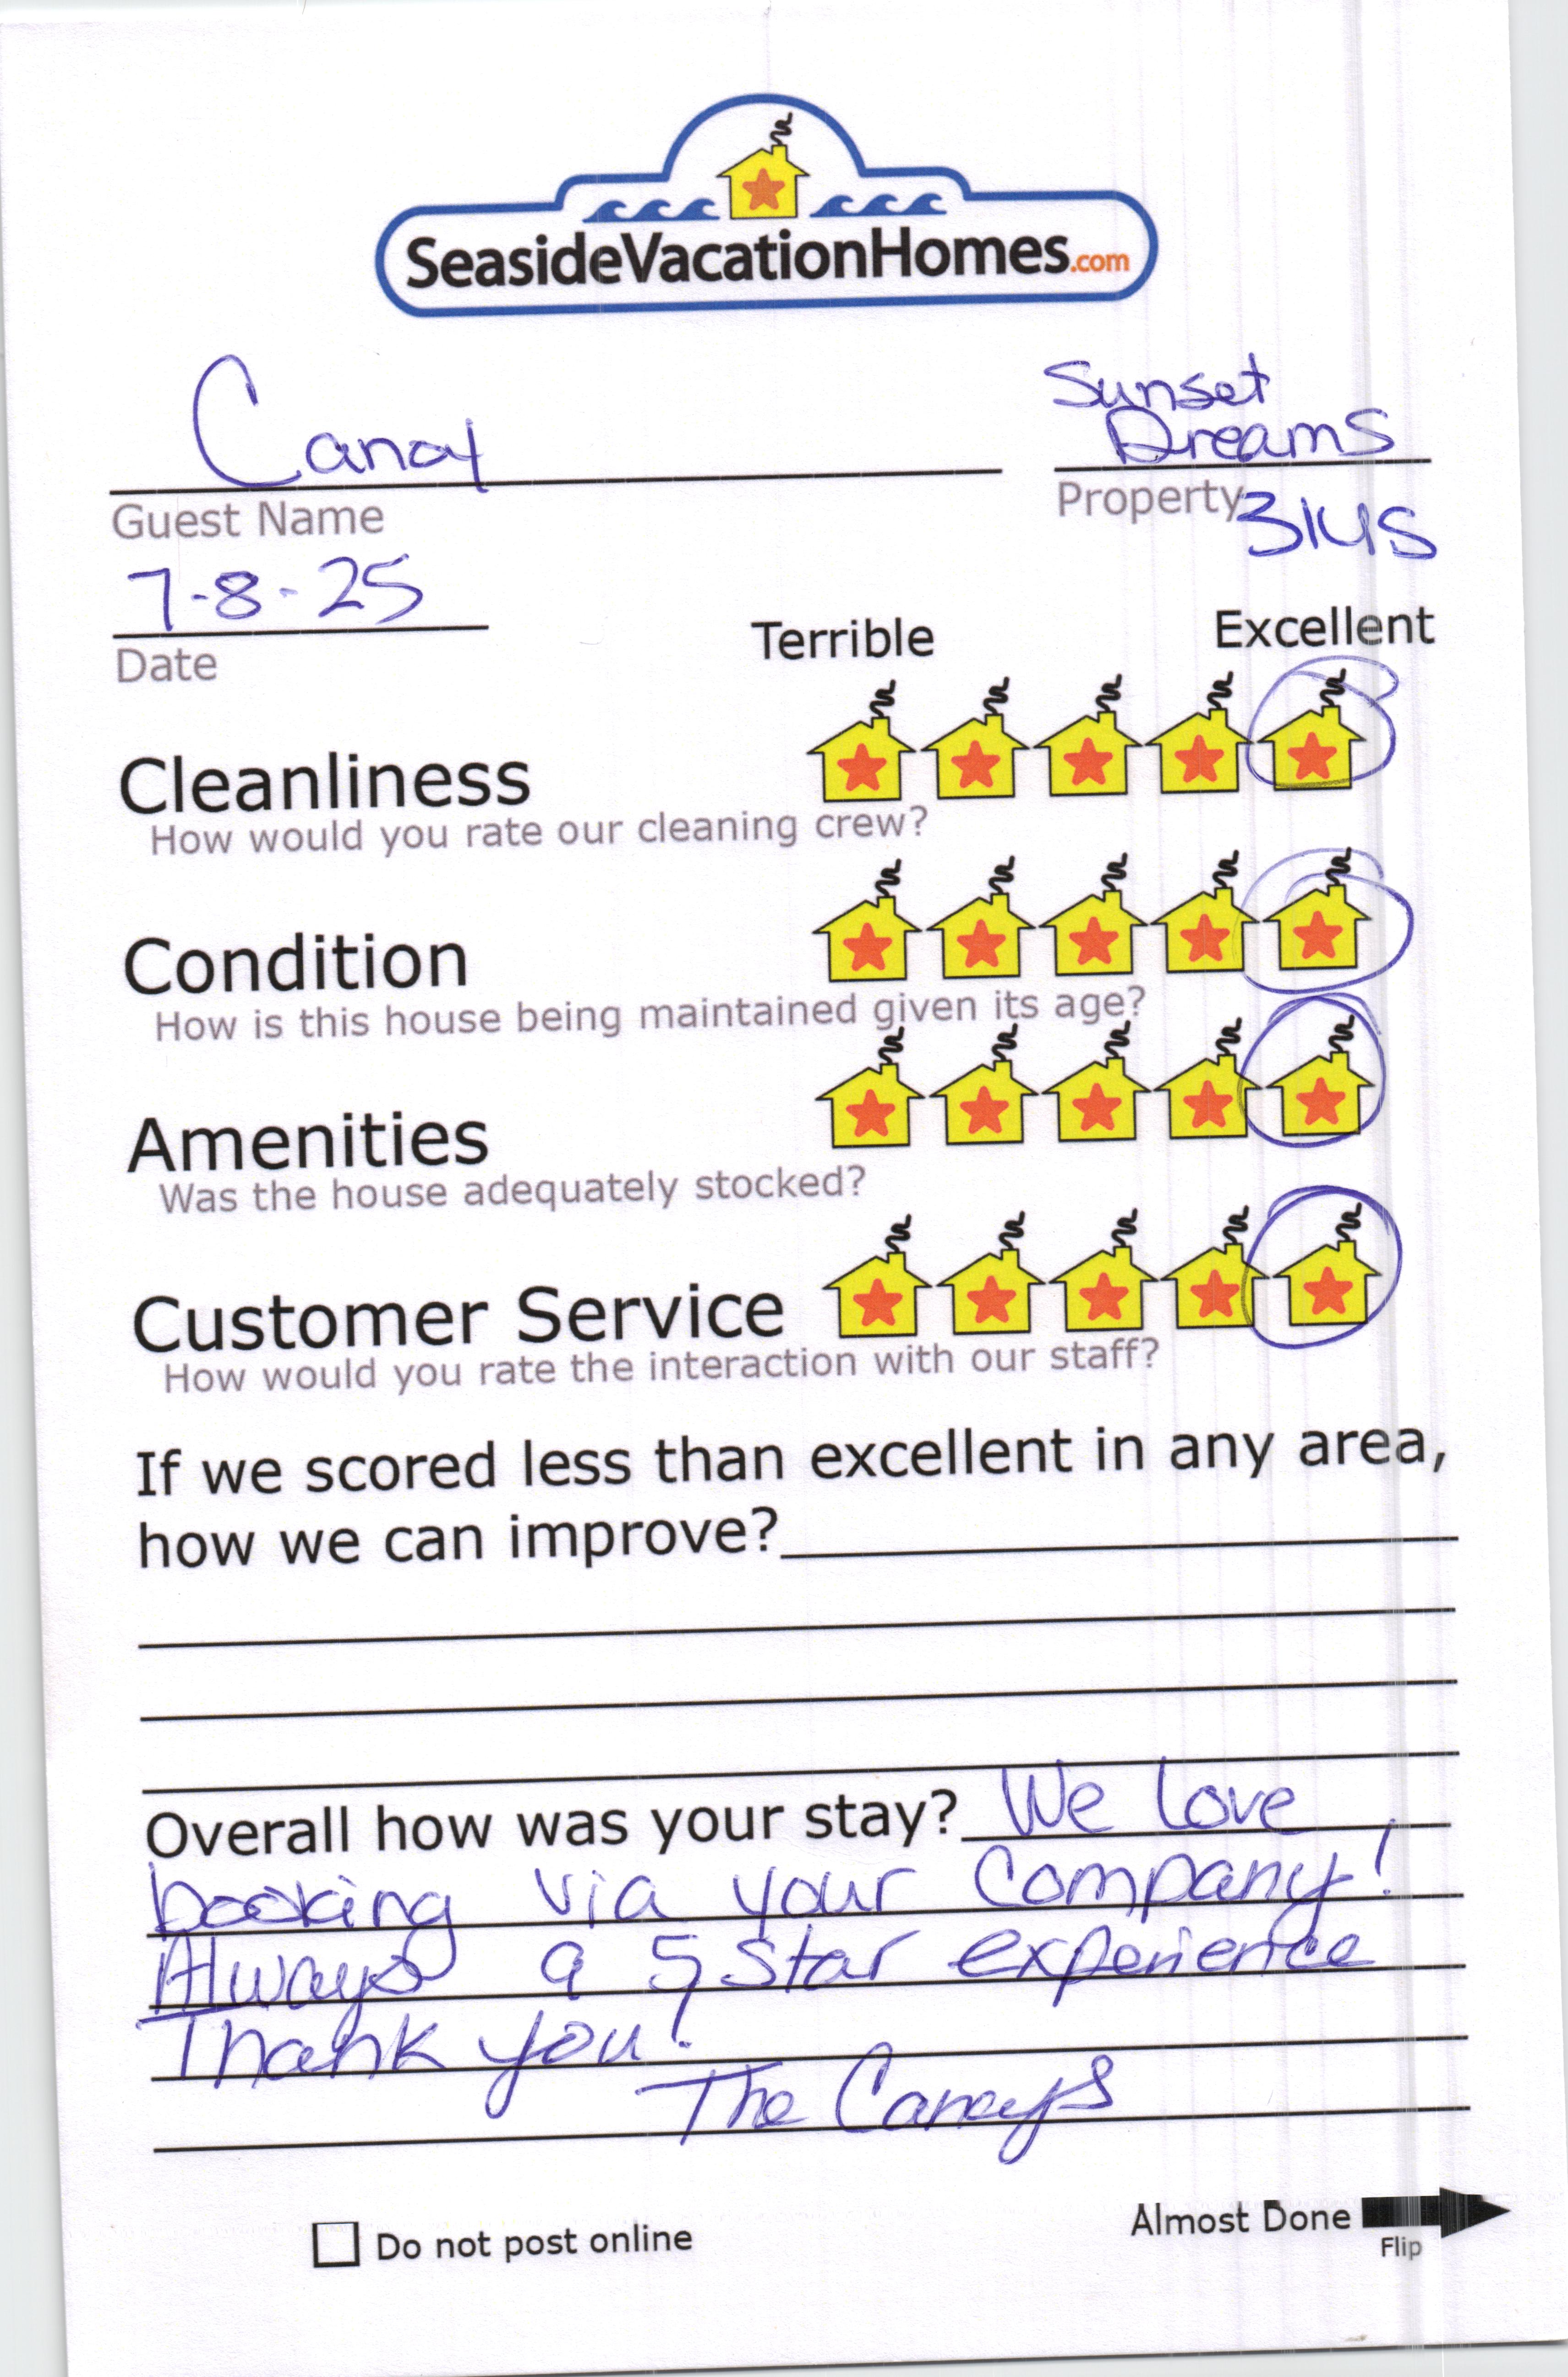 SeasideVacationHomes.com
Sunset
Canoy Dreams
Guest Name Property
3145
7-8-25
Date
Terrible Excellent
Cleanliness
How would you rate our cleaning crew?
Condition
How is this house being maintained given its age?
Amenities
Was the house adequately stocked?
Customer Service
How would you rate the interaction with our staff?
If we scored less than excellent in any area,
how we can improve?
Overall how was your stay? We love
booking via your company!
Always a 5 star experience
Thank you!
The
Do not post online
Almost Done
Flip